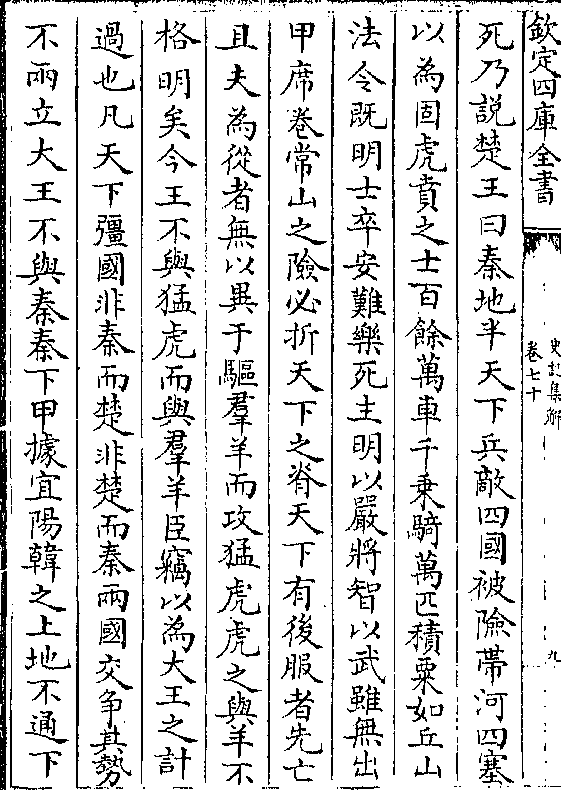 欽定四庫全書
史記集解
卷七十
九
死乃說楚王曰秦地半天下兵敵四國被險帶河四塞
以為固虎賁之士百餘萬車千乘騎萬匹積粟如丘山
法令既明士卒安難樂死主明以嚴將智以武雖無出
甲席卷常山之險必折天下之脊天下有後服者先亡
且夫為從者無以異于驅羣羊而攻猛虎虎之與羊不
格明矣今王不與猛虎而與羣羊臣竊以為大王之計
過也凡天下彊國非秦而楚非楚而秦兩國交争其勢
不兩立大王不與秦秦下甲據宜陽韓之上地不通下